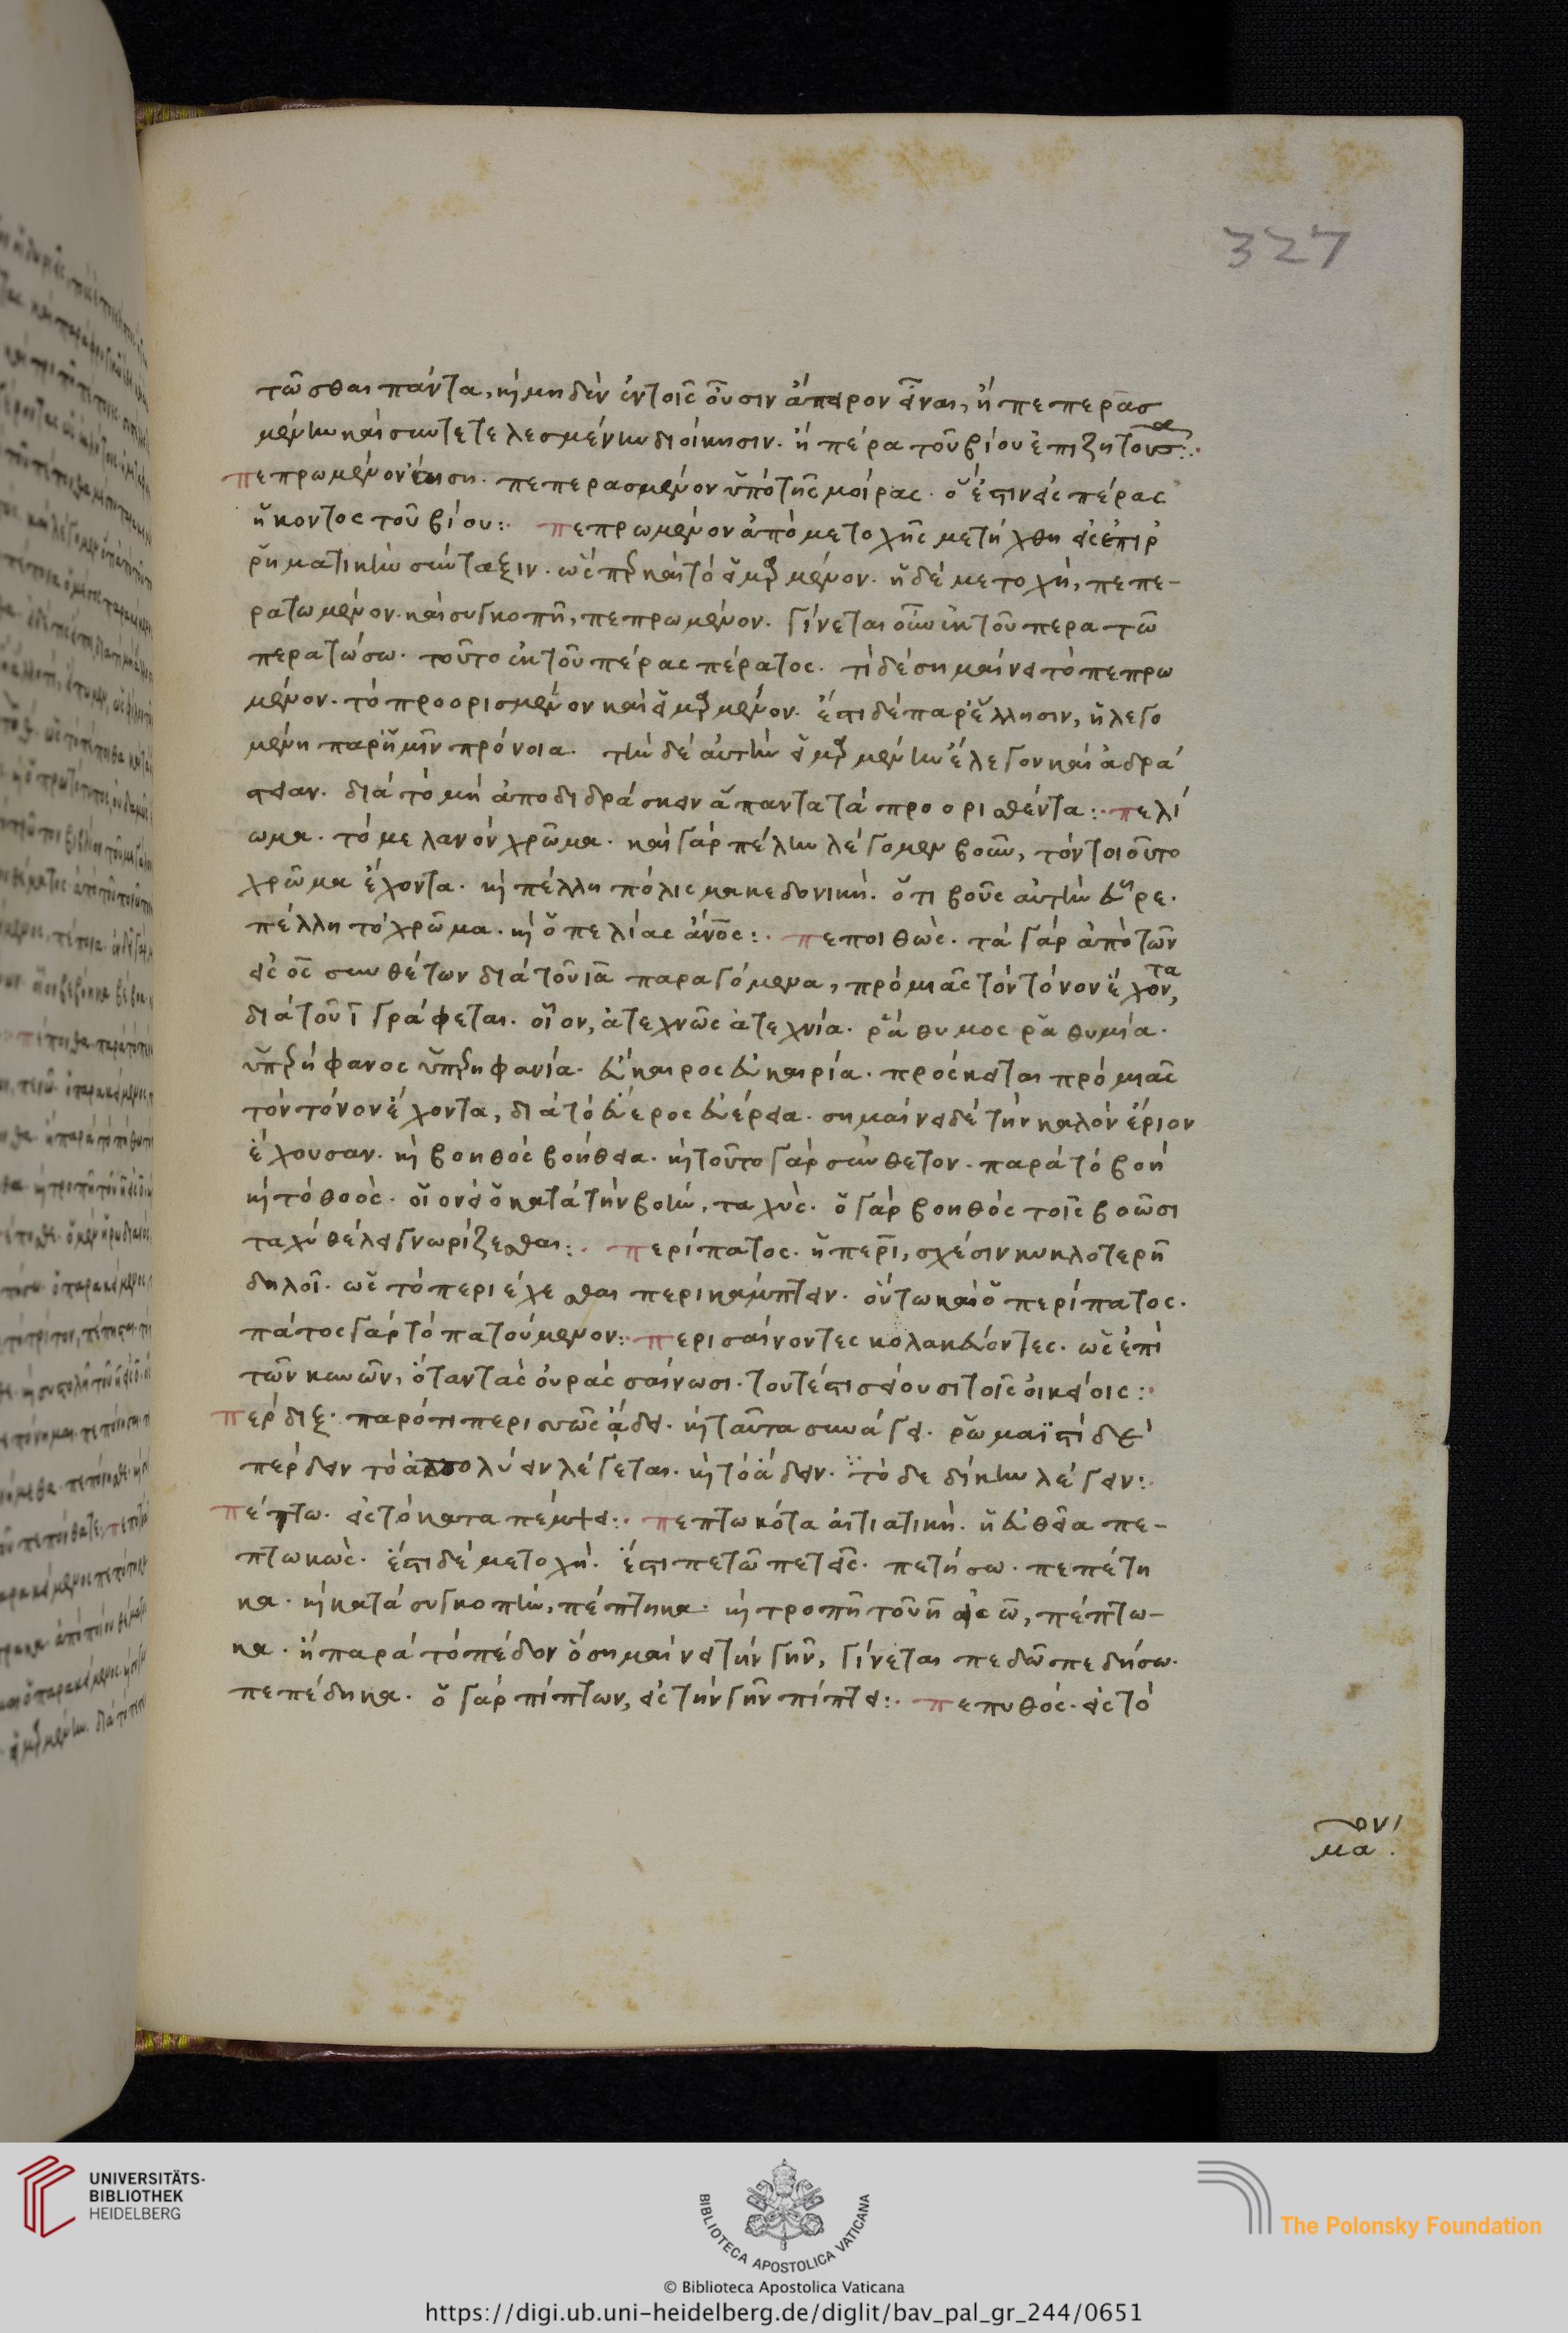 327
τῶσθαι πάντα, κὴ μηδὲν ἐν τοῖς οὖσιν ἄπειρον εἶναι, ἢ πεπερασ
μένην καὶ συντετελεσμένην διοίκησιν. ἢ πέρα τοῦ βίου ἐπιζητοῦσα:·
πεπρωμένον πεπερασμένον ὑπὸ τῆς μοίρας. ὅ ἐστιν εἰς πέρας
ἥκοντος τοῦ βίου:· πεπρωμένον ἀπὸ μετοχῆς μετήχθη εἰς ἐπιρ
ρηματικὴν σύνταξιν. ὥσπερ καὶ τὸ εἱμαρμένον. ἡ δὲ μετοχὴ, πεπε-
ρατωμένον. καὶ συγκοπῇ, πεπρωμένον. γίνεται οὖν ἐκ τοῦ περατῶ
περατώσω. τοῦτο ἐκ τοῦ πέρας πέρατος. τί δὲ σημαίνει τὸ πεπρω
μένον. τὸ προορισμένον καὶ εἱμαρμένον. ἔστι δὲ παρ' ἕλλησιν, ἡ λεγο
μένη παρ' ἡμῖν πρόνοια. τὴν δὲ αὐτὴν εἱμαρμένην ἔλεγον καὶ ἀδρά
στειαν. διὰ τὸ μὴ ἀποδιδράσκειν ἅπαντα τὰ προορισθέντα:· πελί
ωμα. τὸ μελανὸν χρῶμα. καὶ γὰρ πέλην λέγομεν βοῦν, τὸν τοιοῦτο
χρῶμα ἔχοντα. κὴ πέλλη πόλις μακεδονική. ὅτι βοῦς αὐτὴν εὗρε.
πέλλη τὸ χρῶμα. κὴ ὁ πελίας ἄνος:· πεποιθώς. τὰ γὰρ ἀπὸ τῶν
εἰς ος συνθέτων διὰ τοῦ ια παραγόμενα, πρὸ μιᾶς τὸν τόνον ἔχοντα,
διὰ τοῦ ι γράφεται. οἷον, ἀτεχνῶς ἀτεχνία. ῥάθυμος ῥαθυμία.
ὑπερήφανος ὑπερηφανία. εὔκαιρος εὐκαιρία. πρόσκειται πρὸ μιᾶς
τὸν τόνον ἔχοντα, διὰ τὸ εὔερος εὐέρεια. σημαίνει δὲ τὴν καλὸν ἔριον
ἔχουσαν. κὴ βοηθὸς βοήθεια. κὴ τοῦτο γὰρ σύνθετον. παρὰ τὸ βοή
κὴ τὸ θοός. οἱονεὶ ὁ κατὰ τὴν βοὴν, ταχύς. ὁ γὰρ βοηθὸς τοῖς βοῶσι
ταχὺ θέλει γνωρίζεσθαι:· περίπατος. ἡ περὶ, σχέσιν κυκλοτερῆ
δηλοῖ. ὡς τὸ περιέχεσθαι περικάμπτειν. οὕτω καὶ ὁ περίπατος.
πάτος γὰρ τὸ πατούμενον:· περισαίνοντες κολακεύοντες. ὡς ἐπὶ
τῶν κυνῶν, ὅταν τὰς οὐρὰς σαίνωσι. τουτέστι σείουσι τοῖς οἰκείοις:·
πέρδιξ. παρότι περισσῶς ᾄδει. κὴ ταῦτα συνάγει. ῥωμαϊστὶ δὲ
πέρδειν τὸ ἀπολύειν λέγεται. κὴ τὸ ᾄδειν. τὸ δε δίκην λέγειν:·
πέπτω. εἰς τὸ καταπέμψει:· πεπτωκότα αἰτιατική. ἡ εὐθεῖα πε-
πτωκώς. ἔστι δὲ μετοχή. ἔστι πετῶ πετεῖς. πετήσω. πεπέτη
κα. κὴ κατὰ συγκοπὴν, πέπτηκα. κὴ τροπῇ τοῦ η εἰς ω, πέπτω-
κα. ἢ παρὰ τὸ πέδον ὃ σημαίνει τὴν γῆν, γίνεται πεδῶ πεδήσω.
πεπέδηκα. ὁ γὰρ πίπτων, εἰς τὴν γῆν πίπτει:· πεπυθός. εἰς τὸ
μα.
UNIVERSITÄTS-
BIBLIOTHEK
HEIDELBERG
BIBLIOTECA APOSTOLICA VATICANA
The Polonsky Foundation
© Biblioteca Apostolica Vaticana
https://digi.ub.uni-heidelberg.de/diglit/bav_pal_gr_244/0651